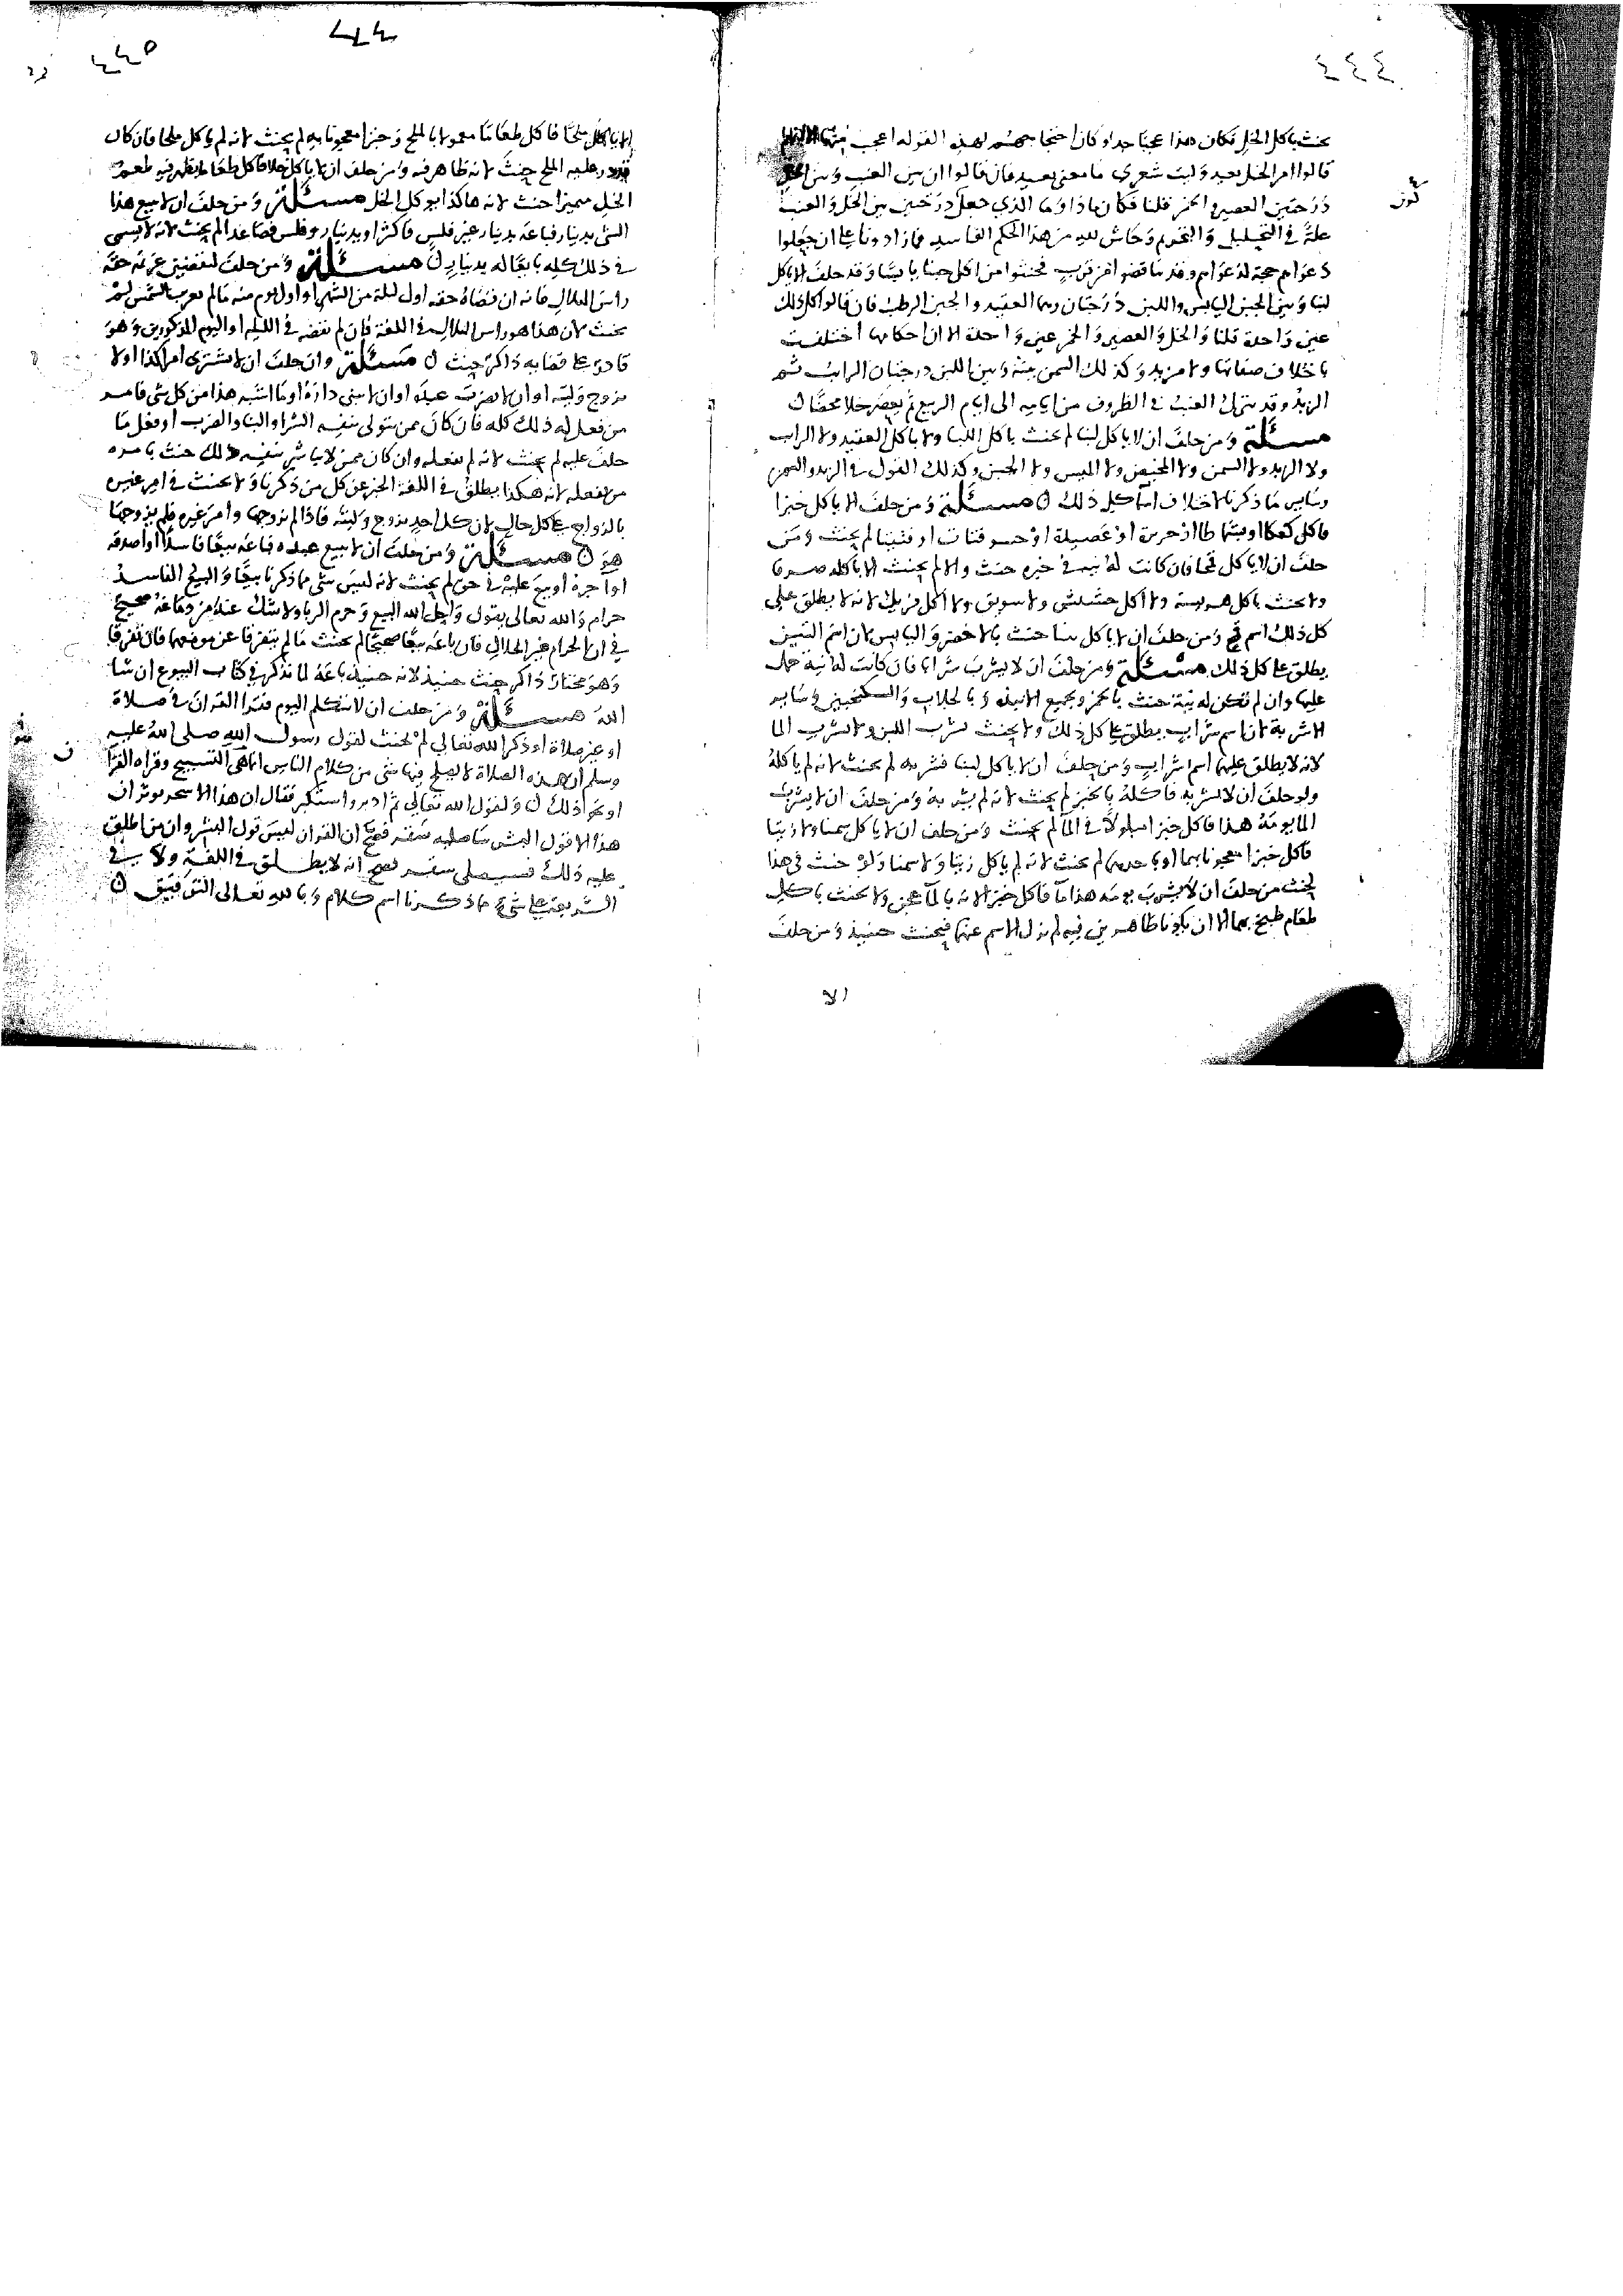 ٤٤٤
يحنث باكل الخل فكان هذا عجبا جدا وكان احتجاجهم لهذه القولة اعجب منها
قالوا امر الخل بعيد وليت شعري ما معنى بعيد فان قالوا ان بين العنب وبين الخل
درجتين العصير والخمر قلنا فكان ماذا وما الذي جعل درجتين بين الخل والعنب
علة في التحليل والتحريم وحاش لله من هذا الحكم الفاسد فما زادونا على ان جعلوا
دعواهم حجة لدعواهم وقد ناقضوا من قريب فحنثوا من اكل جبنا يابسا وقد حلف الا ياكل
لبنا وبين الجبن اليابس واللبن درجتان وهما العقيد والجبن الرطب فان قالوا كل ذلك
عين واحدة قلنا والخل والعصير والخمر عين واحدة الا ان احكامها اختلفت
باختلاف صفاتها ولا مزيد وكذلك السمن بينه وبين اللبن درجتان الرائب ثم
الزبد وقد ينزل العنب في الظروف من ايامه الى ايام الربيع ثم يعصر خلا محضا ن
مسئلة ومن حلف ان لا ياكل لبنا لم يحنث باكل اللبا ولا باكل العقيد ولا الراب
ولا الزبد ولا السمن ولا المخيض ولا الميس ولا الجبن وكذلك القول في الزبد والسمن
وساير ما ذكرنا لاختلاف اسما كل ذلك ن مسئلة ومن حلف الا ياكل خبزا
فاكل كعكا او بشماطا او حريرة او عصيدة او حسو فتات او فتيتا لم يحنث ومن
حلف ان لا ياكل قمحا فان كانت له نية في خبزه حنث والا لم يحنث الا باكله صرفا
ولا يحنث باكل هريسة ولا اكل حشيش ولا سويق ولا اكل فريك لانه لا يطلق على
كل ذلك اسم قمح ومن حلف ان لا ياكل تينا حنث بالاخضر واليابس لان اسم التين
يطلق على كل ذلك مسئلة ومن حلف ان لا يشرب شرابا فان كانت له نية حمل
عليها وان لم تكن له نية حنث بالخمر وبجميع الانبذة وبالجلاب والسكنجبين وساير
الاشربة لان اسم شراب يطلق على كل ذلك ولا يحنث بشرب اللبن ولا بشرب الما
لانه لا يطلق عليهما اسم شراب ومن حلف ان لا ياكل لبنا فشربه لم يحنث لانه لم ياكله
ولو حلف ان لا يشربه فاكله بالخبز لم يحنث لانه لم يشربه ومن حلف ان لا يشرب
الما يومه هذا فاكل خبزا مبلولا في الما لم يحنث ومن حلف ان لا ياكل سمنا ولا زيتا
فاكل خبزا معجونا بهما او باحدهما لم يحنث لانه لم ياكل زيتا ولا سمنا ولو حنث في هذا
لحنث من حلف ان لا يشرب يومه هذا ما فاكل خبزا لانه بالما عجن ولا يحنث باكل
طعام طبخ بهما الا ان يكونا ظاهرين فيه لم يزل الاسم عنهما فيحنث حينيذ ومن حلف
الا
٤٤٥
الا ياكل ملحا فاكل طعاما معمولا بالملح وخبزا معجونا به لم يحنث لانه لم ياكل ملحا فان كان
قد ذر عليه الملح حنث لانه ظاهر فيه ومن حلف ان لا ياكل خلا فاكل طعاما يظهر فيه طعم
الخل متميزا حنث لانه هاكذا يوكل الخل مسئلة ومن حلف ان لا يبيع هذا
الشي بدينار فباعه بدينار غير فلس فاكثر او بدينار وفلس فصاعدا لم يحنث لانه لا يسمى
في ذلك كله بايعا له بدينار ن مسئلة ومن حلف ليقضين غريمه حقه
راس الهلال فانه ان قضاه حقه اول ليلة من الشهر او اول يوم منه ما لم تغرب الشمس لم
يحنث لان هذا هو راس الهلال في اللغة فان لم يقضه في الليلة او اليوم المذكورين وهو
قادر على قضايه ذاكر حنث ن مسئلة وان حلف ان لا يشتري امر كذا او لا
يزوج وليته او ان لا يضرب عبده او ان لا يبني داره او ما اشبه هذا من كل شي فامر
من فعل له ذلك كله فان كان ممن يتولى بنفسه الشرا والبنا والضرب او فعل ما
حلف عليه لم يحنث لانه لم يفعله وان كان ممن لا يباشر بنفسه ذلك حنث بامره
من يفعله لانه هكذا يطلق في اللغة الخبر عن كل من ذكرنا ولا يحنث في امر غيره
بالزواج على كل حال لان كل احد يزوج وليته فاذا لم يزوجها وامر غيره فلم يزوجها
هو ن مسئلة ومن حلف ان لا يبيع عبده فباعه بيعا فاسدا او اصدقه
او اجره او بيع عليه في حق لم يحنث لانه ليس شي مما ذكرنا بيعا والبيع الفاسد
حرام والله تعالى يقول واحل الله البيع وحرم الربا ولا شك عند من دماغه صحيح
في ان الحرام غير الحلال فان باعه بيعا صحيحا لم يحنث ما لم يتفرقا عن موضعهما فان تفرقا
وهو مختار ذاكر حنث حينيذ لانه حينيذ باعه لما نذكر في كتاب البيوع ان شا
الله مسئلة ومن حلف ان لا يتكلم اليوم فقرا القران في صلاة
او غير صلاة او ذكر الله تعالى لم يحنث لقول رسول الله صلى الله عليه
وسلم ان هذه الصلاة لا يصلح فيها شي من كلام الناس انما هي التسبيح وقراه القرا
او نحو ذلك ن ولقول الله تعالى ثم ادبر واستكبر فقال ان هذا الا سحر يوثر ان
هذا الا قول البشر ساصليه سقر فصح ان القران ليس قول البشر وان من اطلق
عليه ذلك فسيصلى سقر فصح انه لا يطلق في اللغة ولا في
الشريعة على شي مما ذكرنا اسم كلام وبالله تعالى التوفيق ن